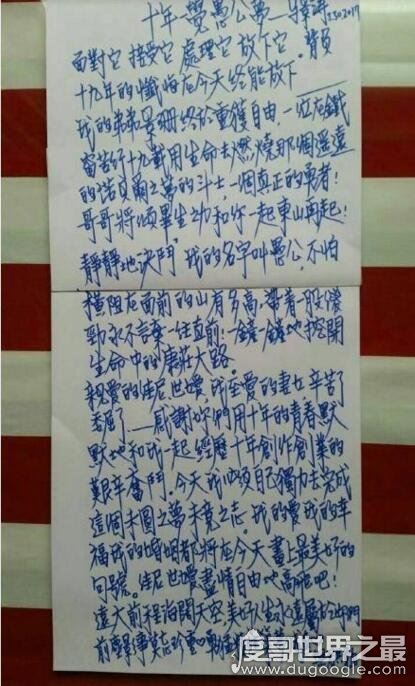 十年一覺愚公夢—擇濤 2017
面對它 接受它 處理它 放下它. 背負
十九年的懺悔在今天終能放下
我的弟弟景珊終於重獲自由.一位在鐵
窗苦行十九載用生命去燃燒那個遙遠
的諾貝爾之夢的斗士,一個真正的勇者!
哥哥將傾畢生之力和你一起東山再起!
靜靜地決鬥,我的名字叫愚公,不怕
橫阻在面前的山有多高,帶着一股傻
勁永不言棄一往直前;一錢一錢地挖開
生命中的康莊大路.
親愛的佳尼也嬡,我至愛的妻女辛苦了
委屈了——感謝你們用十年的青春默
默地和我一起經歷十年創作創業的
艱辛奮鬥.今天我必須自己獨力去完成
這個未圓之夢未竟之志.我的愛我的幸
福我的婚姻都將在今天畫上最美好的
句號.佳尼也嬡盡情自由地高飛吧!
遠大前程海闊天空.美好生活永遠屬於你們
度哥世界之最
www.dugoogle.com